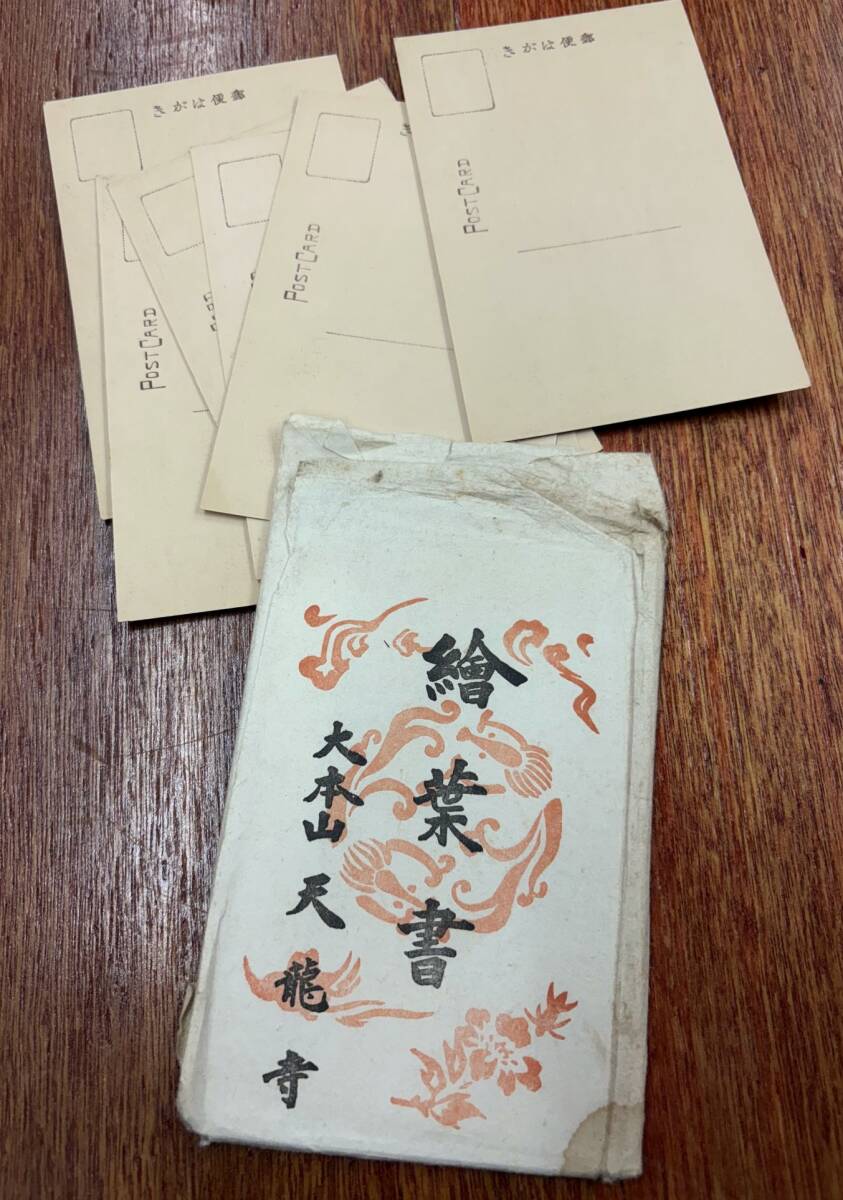 郵便はがき
POST CARD
POST CARD
郵便はがき
POST CARD
繪葉書
大本山 天龍寺